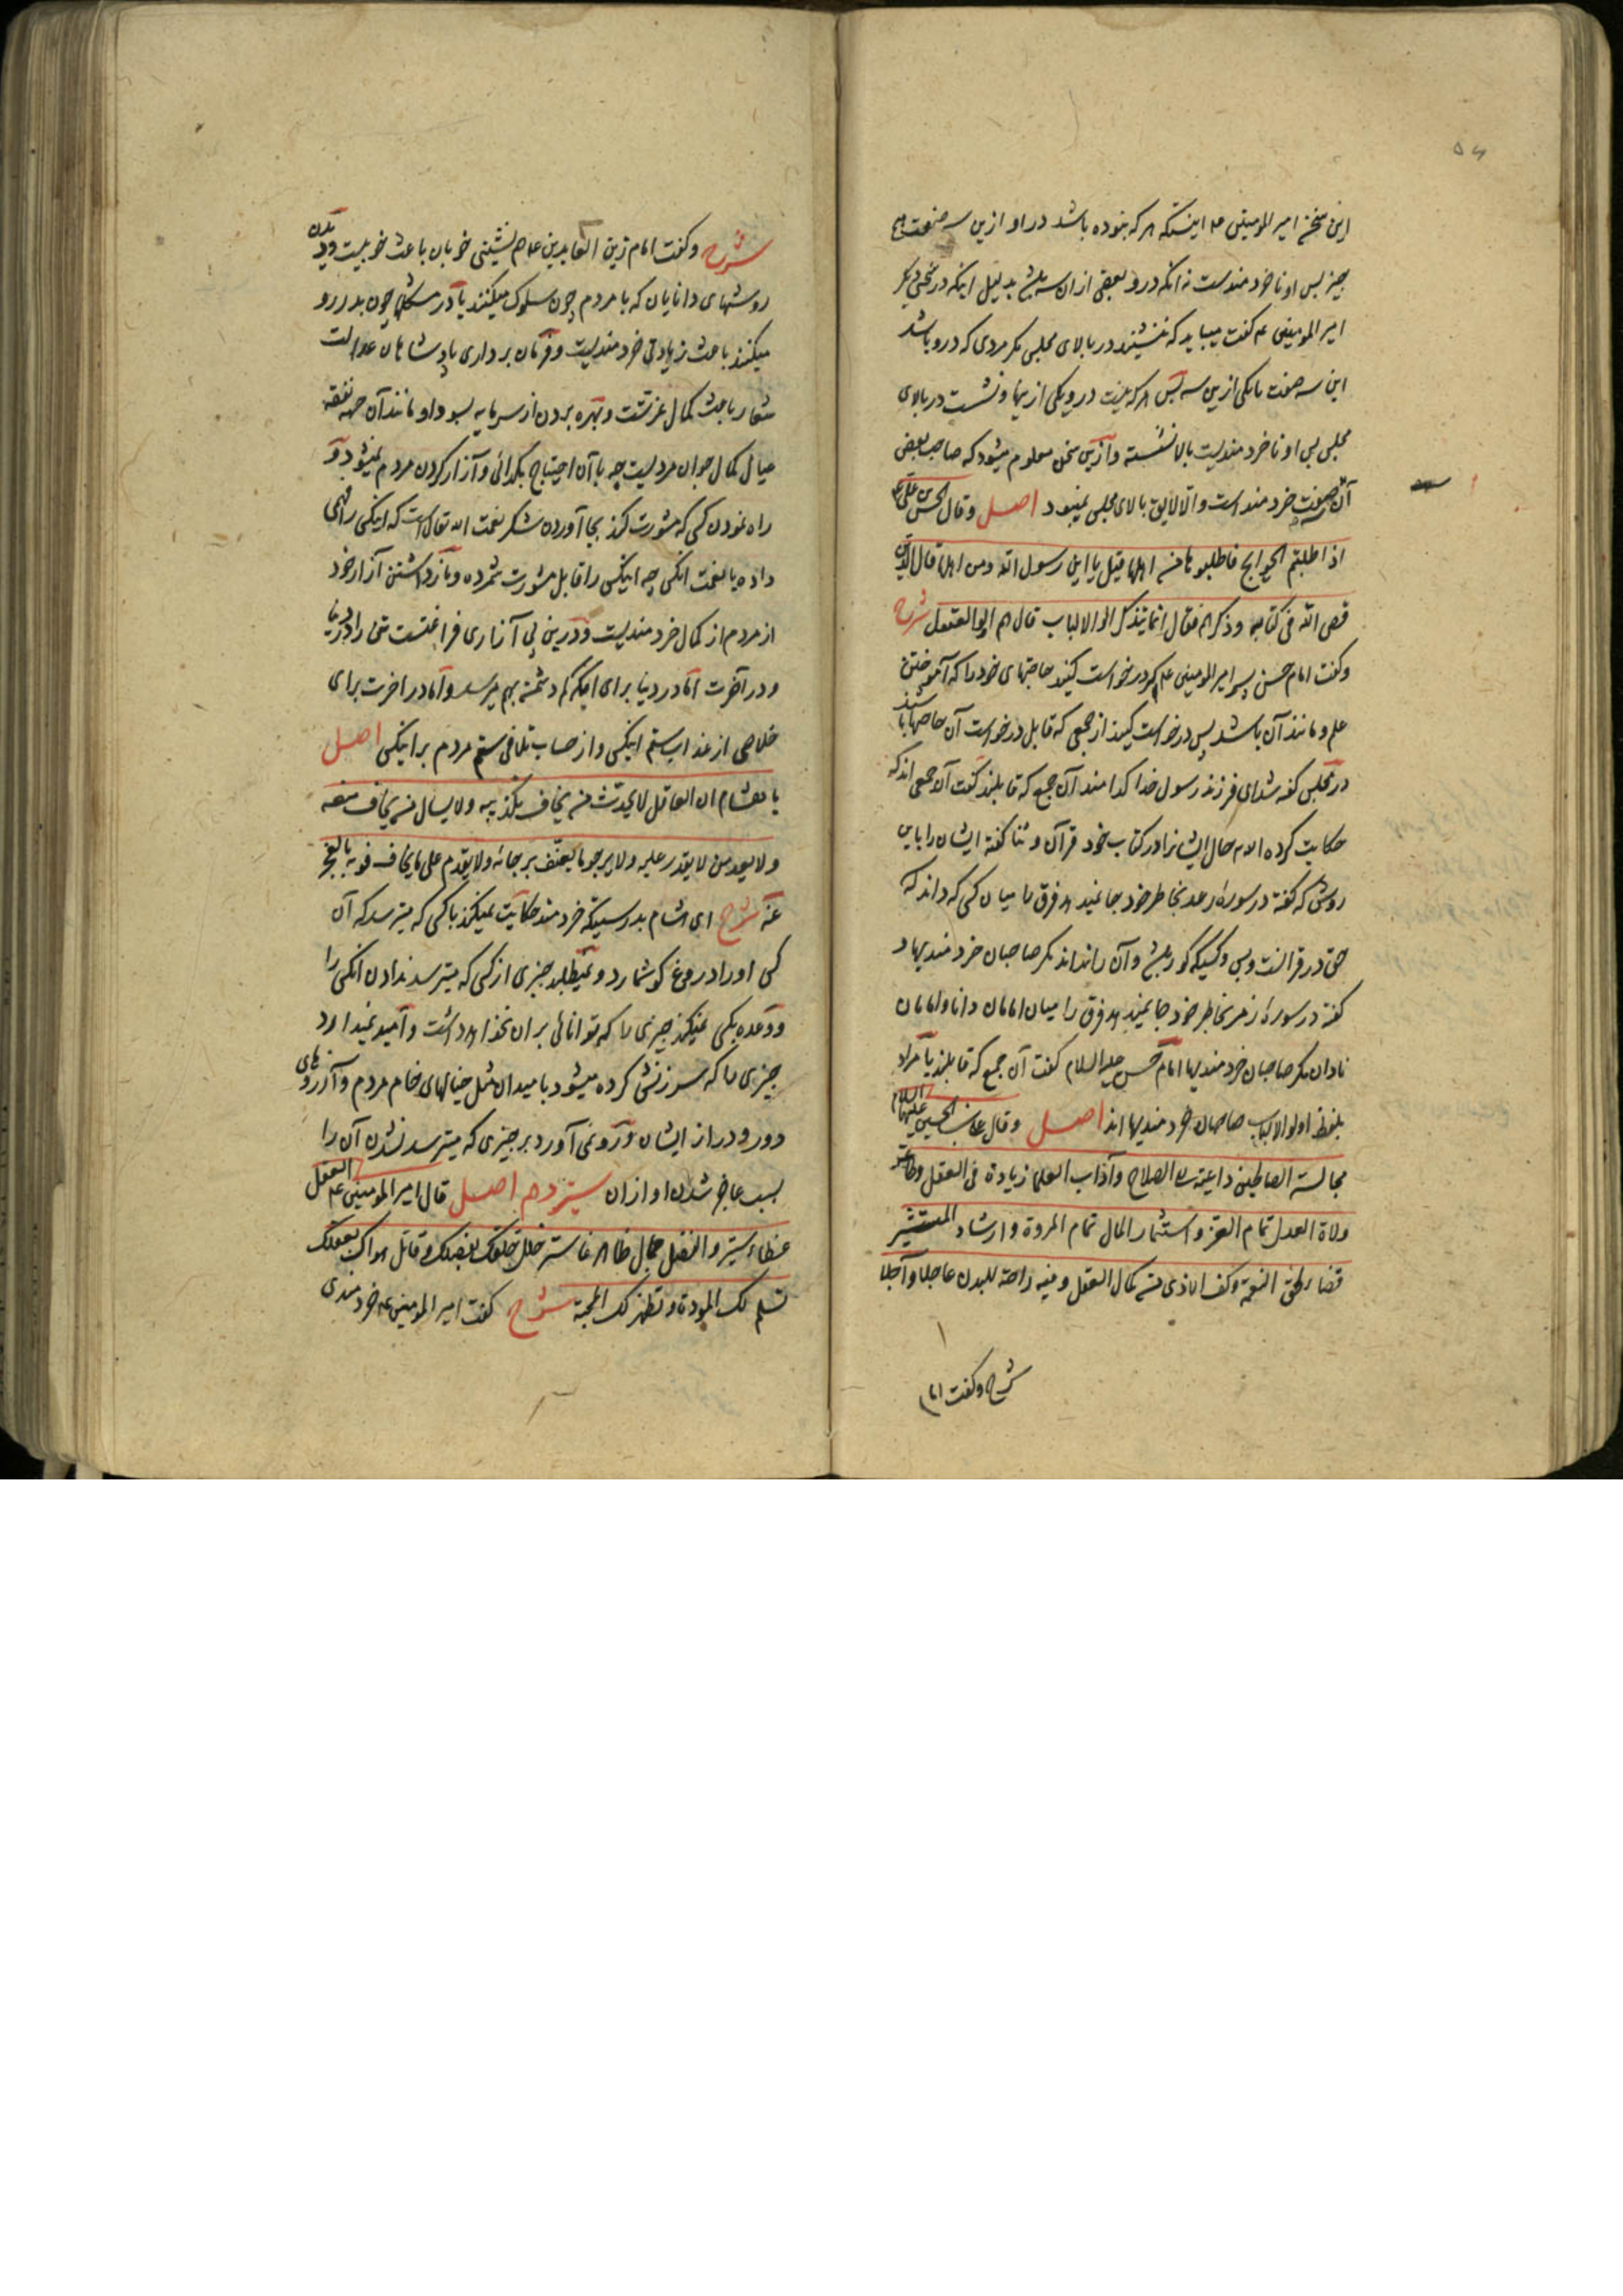 ۵۶
این سخن امیر المومنین ع اینستکه هر که نبوده باشد در او ازین سه صفت هیچ
چیز پس او ناخردمندست نه آنکه درو بعضی از آن سه باشد بدلیل اینکه در سخنی دیگر
امیر المومنین ع گفت میباید که ننشیند در بالای مجلس مگر مردی که درو باشد
این سه صفت یا یکی ازین سه پس هر که نیست درو یکی ازینها و نشست در بالای
مجلس پس او ناخردمندیست بالا نشسته و ازین سخن معلوم میشود که صاحب بعض
آن صفت خردمند است والا لایق بالای مجلس نمیبود اصل وقال الحسن بن علی ع
اذا طلبتم الحوایج فاطلبوها من اهلها قیل یا ابن رسول الله ومن اهلها قال الذین
قص الله فی کتابه وذکرهم فقال انما یتذکر اولوا الالباب قال هم اولوا العقول شرح
وگفت امام حسن پسر امیر المومنین ع چون درخواست کنید حاجتهای خود را که آموختن
علم و مانند آن باشد پس درخواست کنید از جمعی که قابل درخواست آن حاجتها باشند
در مجلس گفته شد ای فرزند رسول خدا کدامند آن جمع که قابلند گفت آن جمعی اند که
حکایت کرده الله حال ایشانرا در کتاب خود قرآن و ثنا گفته ایشان را باین
روش که گفته در سوره رعد بخاطر خود جا نمیدهد فرق را میان کسی که داند که
حق در قرآنست وبس و کسیکه کور باشد و آن را نداند مگر صاحبان خردمندیها و
گفته در سوره زمر بخاطر خود جا نمیدهد فرق را میان امامان دانا و امامان
نادان مگر صاحبان خردمندیها امام حسن علیه السلام گفت آن جمع که قابلند یا مراد
بلفظ اولوا الالباب صاحبان خردمندیها اند اصل وقال علی بن الحسین علیهما السلام
مجالسة الصالحین داعیة الی الصلاح وآداب العلماء زیادة فی العقل وطاعة
ولاة العدل تمام العز واستثمار المال تمام المروة وارشاد المستشیر
قضاء لحق النعمة وکف الاذی من کمال العقل وفیه راحة للبدن عاجلا وآجلا
شرح وگفت امام
شرح وگفت امام زین العابدین ع هم نشینی خوبان باعث خوبیست و دیدن
روشهای دانایان که با مردم چون سلوک میکنند یا در مشکلها چون بدر رو
میکنند باعث زیادتی خردمندیست و فرمان برداری پادشاهان عدالت
شعار باعث کمال عزتست و بهره بردن از سرمایه بسودا و مانند آن جهة نفقه
عیال کمال جوان مردیست چه با آن احتیاج بگدائی و آزار کردن مردم نمیشود و
راه نمودن کسی که مشورت کند بجا آوردن شکر نعمت الله تعالی است که اینکس را فهمی
داده یا نعمت آنکس چه اینکس را قابل مشورت شمرده و باز داشتن آزار خود
از مردم از کمال خردمندیست و درین بی آزاری فراغتست تن را در دنیا
و در آخرت اما در دنیا برای اینکه کم دشمن بهم میرسد و اما در آخرت برای
خلاصی از عذاب ستم اینکس و از حساب تلافی ستم مردم بر اینکس اصل
یا هشام ان العاقل لا یحدث من یخاف تکذیبه ولا یسال من یخاف منعه
ولا یعد من لا یقدر علیه ولا یرجو ما یعنف برجائه ولا یقدم علی ما یخاف فوته بالعجز
عنه شرح ای هشام بدرستیکه خردمند حکایت نمیکند با کسی که میترسد که آن
کس او را دروغ گو شمارد و نمیطلبد چیزی از کسی که میترسد ندادن آنکس را
و وعده بکسی نمیکند چیزی را که توانائی بر آن نخواهد داشت و امید نمیدارد
چیزی را که سرزنش کرده میشود بامید آن مثل خیالهای خام مردم و آرزوهای
دور و دراز ایشان و رو نمی آورد بر چیزی که میترسد نشدن آن را
بسبب عاجز شدن او از آن سیزدهم اصل قال امیر المومنین ع العقل
غطاء ستیر والفضل جمال ظاهر فاستر خلل خلقک بفضلک وقاتل هواک بعقلک
تسلم لک المودة وتظهر لک المحبة شرح گفت امیر المومنین ع خردمندی